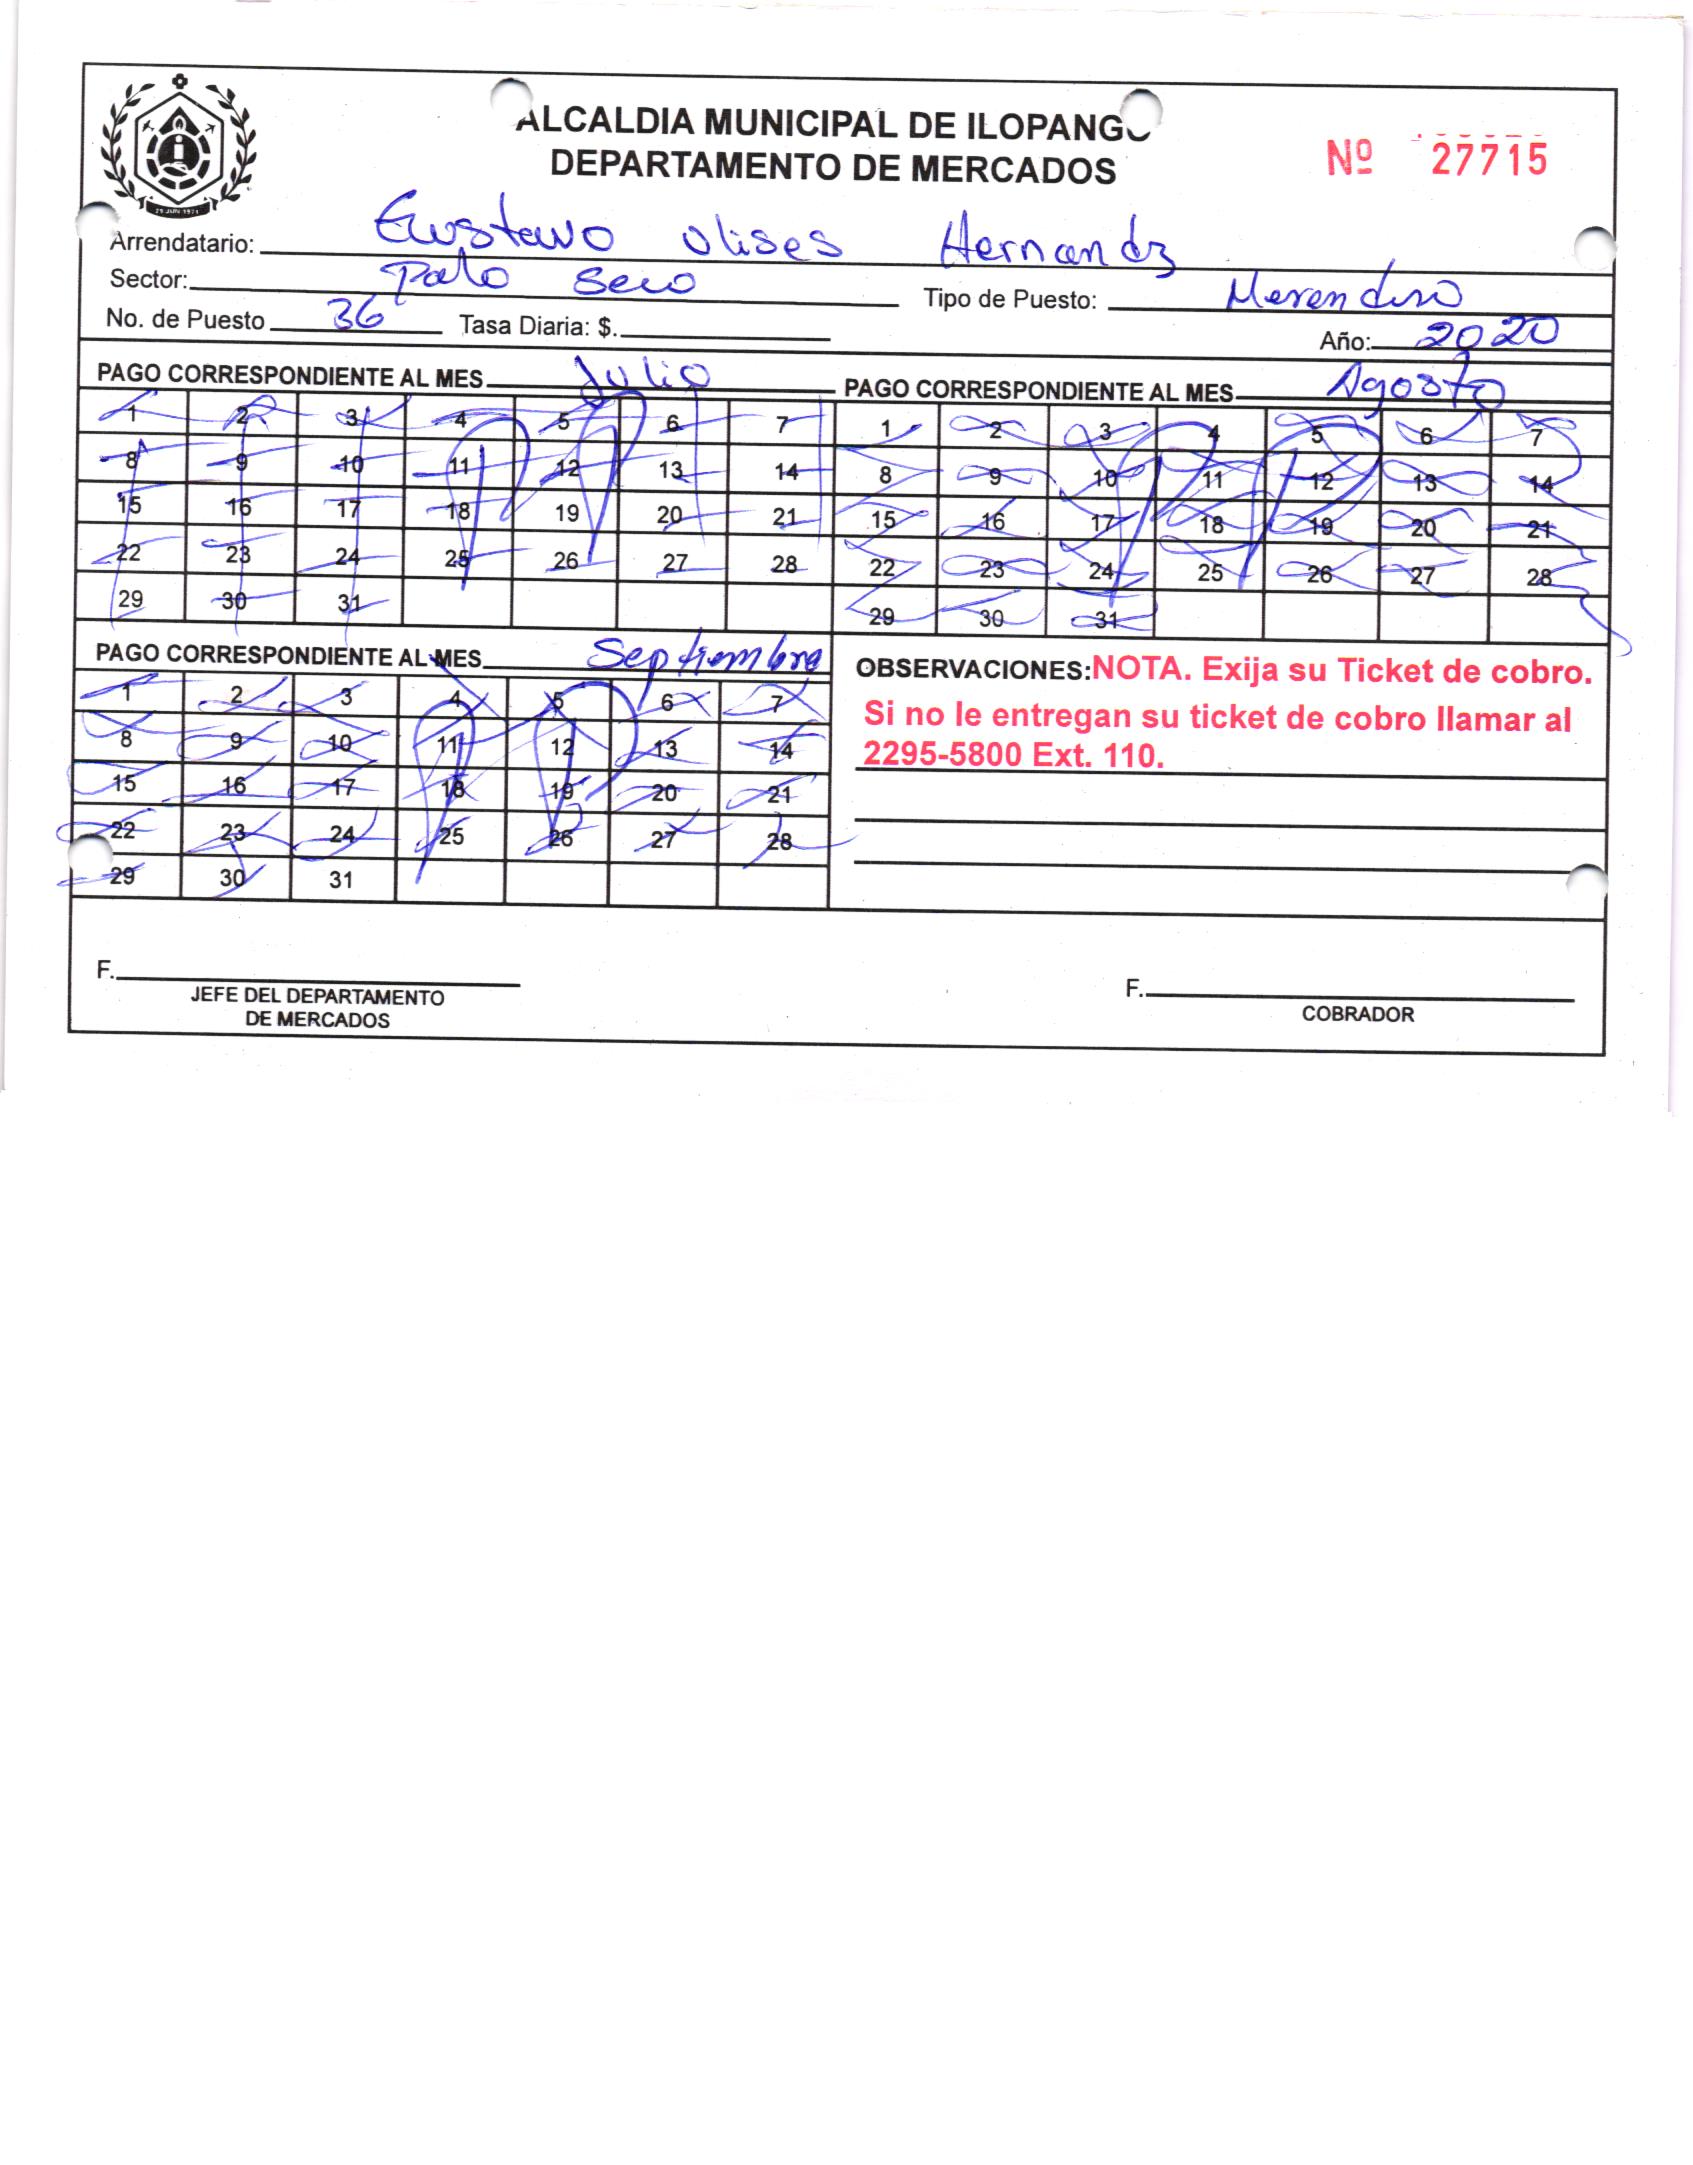 ALCALDIA MUNICIPAL DE ILOPANGO
DEPARTAMENTO DE MERCADOS
Nº 27715
29 JUN 1971
Arrendatario: Gustavo Ulises Hernandz
Sector: Palo Seco Tipo de Puesto: Merendero
No. de Puesto 36 Tasa Diaria: $. Año: 2020
PAGO CORRESPONDIENTE AL MES Julio
1 2 3 4 5 6 7
8 9 10 11 12 13 14
15 16 17 18 19 20 21
22 23 24 25 26 27 28
29 30 31
PAGO CORRESPONDIENTE AL MES Agosto
1 2 3 4 5 6 7
8 9 10 11 12 13 14
15 16 17 18 19 20 21
22 23 24 25 26 27 28
29 30 31
PAGO CORRESPONDIENTE AL MES Septiembre
1 2 3 4 5 6 7
8 9 10 11 12 13 14
15 16 17 18 19 20 21
22 23 24 25 26 27 28
29 30 31
OBSERVACIONES: NOTA. Exija su Ticket de cobro.
Si no le entregan su ticket de cobro llamar al
2295-5800 Ext. 110.
F.
JEFE DEL DEPARTAMENTO
DE MERCADOS
F.
COBRADOR